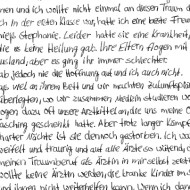 men und ich wollte nicht einmal an diesen Traum d
ch in der ersten Klasse war, hatte ich eine beste Freu
hieß Stephanie. Leider hatte sie eine Krankheit,
die es keine Heilung gab. Ihre Eltern flogen mit
Ausland, aber es ging ihr immer schlechter
gab jedoch nie die Hoffnung auf und ich auch nicht.
viel an ihrem Bett und wir machten Zukunftsplän
überlegten, wo wir zusammen Medizin studieren wo
ogen dazu oft unsere Arztkittel an die wir extra zu
asching geschenkt hatte. Aber trotz langer Kämpfe
harter Nächte ist sie dennoch gestorben. Ich wa
weifelt und traurig und auf alle Ärzte so wütend, da
meinen Traumberuf als Ärztin in mir selbst zerst
wollte keine Ärztin werden, die kranke Kinder im
und ihnen nicht weiterhelfen kann. Wenn ich dan